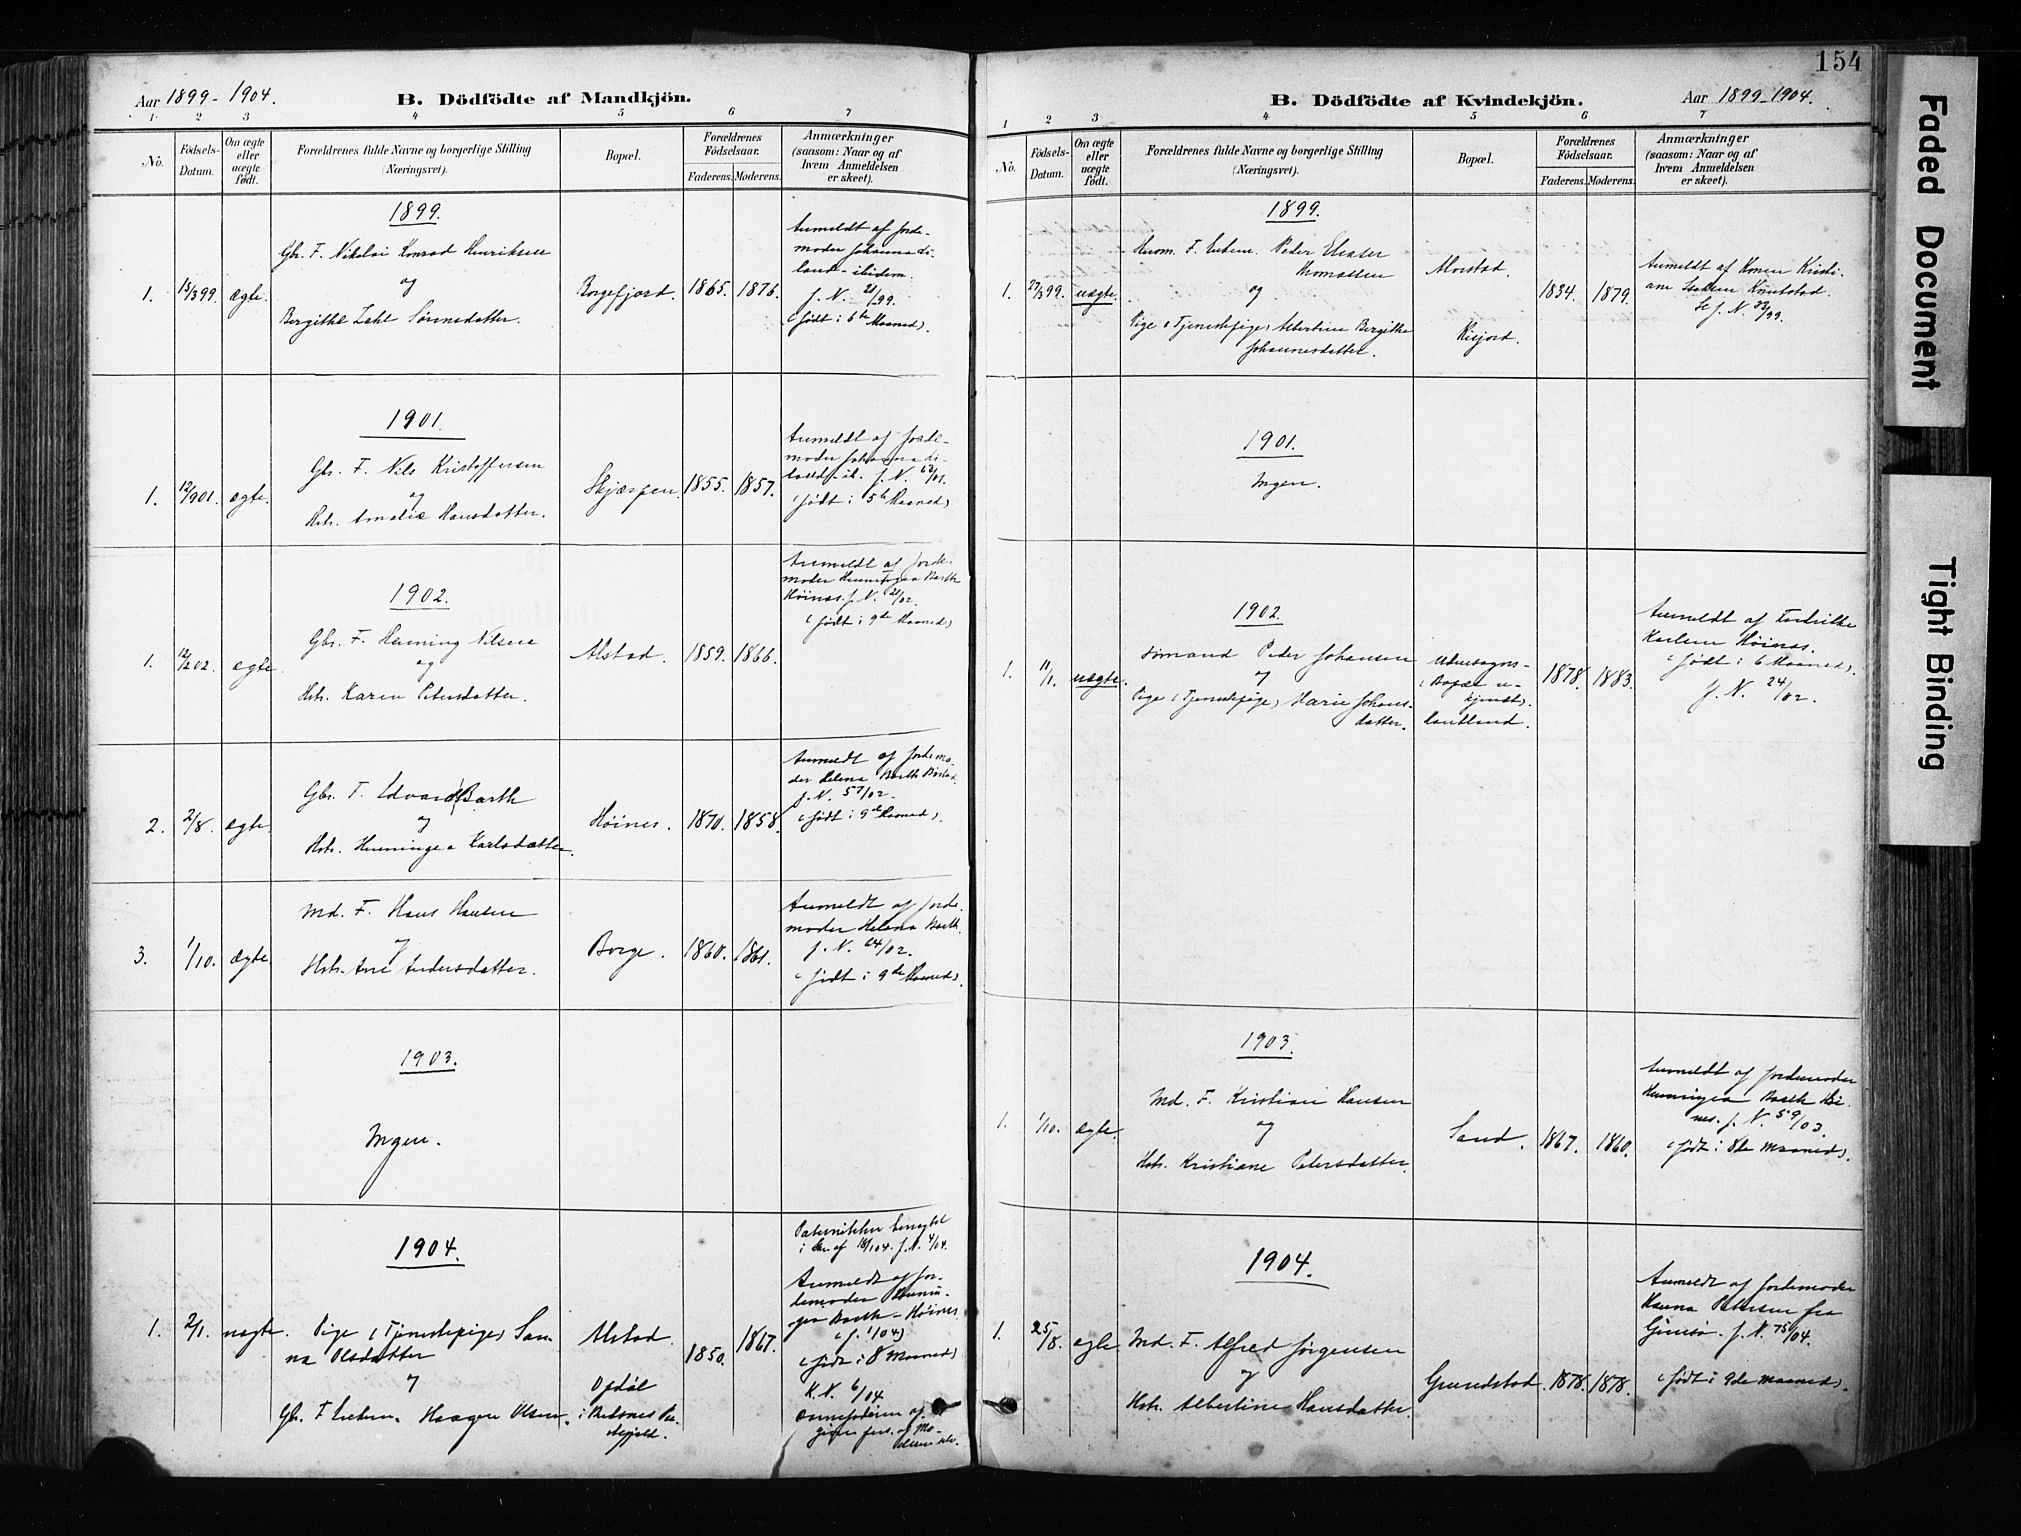 154
Aar 1899-1904.
B. Dödfödte af Mandkjön.
1 2 3 4 5 6 7
No.
Födsels-Datum.
Om ægte eller uægte födt.
Forældrenes fulde Navne og borgerlige Stilling
(Næringsvei).
Bopæl.
Forældrenes Födselsaar.
Faderens. Moderens.
Anmærkninger
(saasom: Naar og af
hvem Anmeldelsen
er skeet).
1899.
1. 15/3 99. ægte.
Gbr. F. Nikolai Konrad Henriksen
og
Bergithe Zahl Sörensdatter.
Borgefjord. 1865. 1876.
Anmeldt af Jorde-
moder Johanna
ibidem.
J. N. 21/99.
(født i 5te Maaned).
1901.
1. 12/9 01. ægte.
Gbr. F. Nils Kristoffersen
og
Hstr. Amalie Hansdatter.
Skjærpen. 1855. 1857.
Anmeldt af Jorde-
moder Johanna
J. N. 63/01.
(født i 5te Maaned)
1902.
1. 12/2 02. ægte
Gbr. F. Henning Nilsen
og
Hstr. Karen Petersdatter.
Alstad. 1859. 1866.
Anmeldt af Jorde-
moder Henningea Barth
Höines. J. N. 21/02.
(født i 9de Maaned)
2. 2/8. ægte.
Gbr. F. Edvard Barth
og
Hstr. Henningea Karlsdatter.
Höines. 1870. 1858.
Anmeldt af Jordemo-
der Helena Barth
J. N. 57/02.
(født i 9de Maaned).
3. 1/10. ægte
Md. F. Hans Hansen
og
Hstr. Ane Andersdatter.
Borge. 1860. 1861.
Anmeldt af Jorde-
moder Helena Barth.
J. N. 64/02.
(født i 9de Maaned)
1903.
Ingen.
1904.
1. 2/1. uægte.
Pige (Tjenestepige) San-
na Olsdatter
og
Gbr. F Enkem. Haagen Olsen.
Alstad.
Opdöl
i
1850. 1867.
J. N. 4/04.
Anmeldt af Jor-
demoder Hennin-
gea Barth - Höines
(J. 1/04)
(født i 8 Maaned)
K. N. 6/04
B. Dödfödte af Kvindekjön.
Aar 1899-1904.
1 2 3 4 5 6 7
No.
Födsels-Datum.
Om ægte eller uægte födt.
Forældrenes fulde Navne og borgerlige Stilling
(Næringsvei).
Bopæl.
Forældrenes Födselsaar.
Faderens. Moderens.
Anmærkninger
(saasom: Naar og af
hvem Anmeldelsen
er skeet).
1899.
1. 27/3 99. uægte.
Husm. F. Enkem. Peder Eleaser
Thomassen
og
Pige (Tjenestepige) Albertine Bergitha
Johannesdatter.
Morstad.
Risjord.
1834. 1879.
Anmeldt af Konen Kristi-
ane Knutstad.
Se J. N. 33/99.
1901.
Ingen.
1902.
1. 11/1. uægte.
Sömand Peder Johansen
og
Pige (Tjenestepige) Marie Johans-
datter.
Udensogns-
(Bopæl u-
kjendt).
1878. 1883.
Anmeldt af Fredrikke
Karlsen Höines.
(født i 6 Maaned).
J. N. 24/02.
1903.
1. 1/10. ægte.
Md. F. Kristian Hansen
og
Hstr. Kristiane Petersdatter.
Sand. 1867. 1860.
Anmeldt af Jordemoder
Henningea Barth Höi-
nes. J. N. 59/03.
(født i 8de Maaned).
1904.
1. 25/8. ægte
Md. F. Alfred Jörgensen
og
Hstr. Albertine Hansdatter.
Grundstad. 1878. 1878.
Anmeldt af Jordemoder
Hanna Petersen fra
Gimsö. J. N. 75/04.
(født i 9de Maaned).
Faded Document
Tight Binding